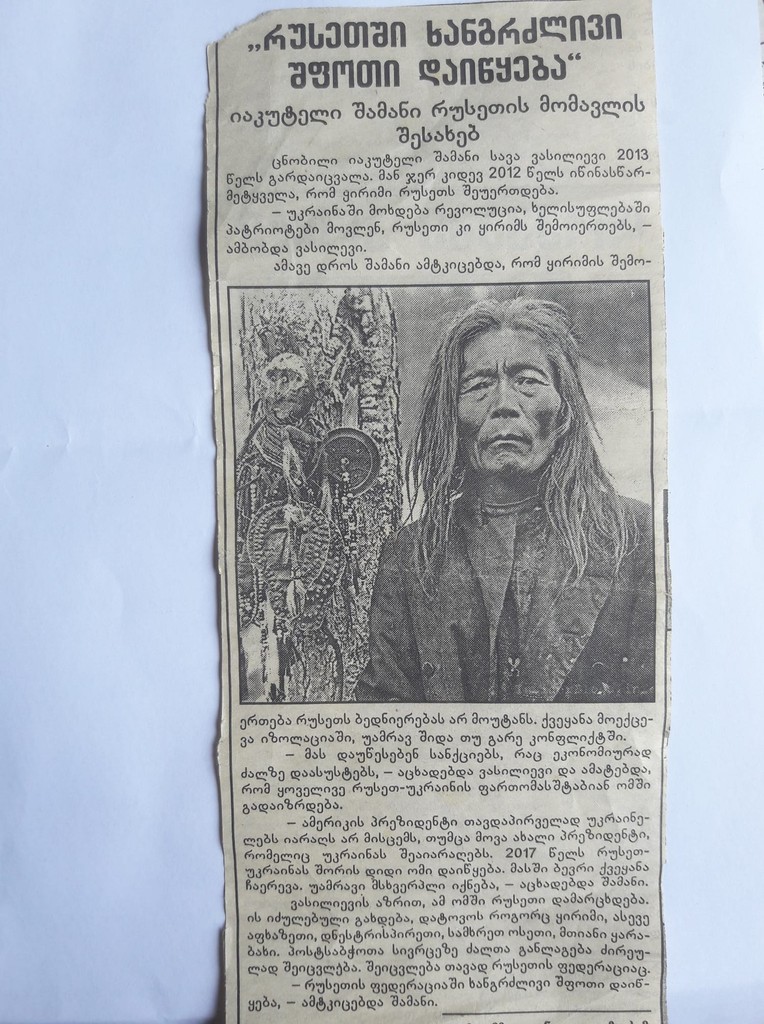 „რუსეთში ხანგრძლივი
შფოთი დაიწყება“
იაკუტელი შამანი რუსეთის მომავლის
შესახებ
ცნობილი იაკუტელი შამანი სავა ვასილიევი 2013
წელს გარდაიცვალა. მან ჯერ კიდევ 2012 წელს იწინასწარ-
მეტყველა, რომ ყირიმი რუსეთს შეუერთდება.
– უკრაინაში მოხდება რევოლუცია, ხელისუფლებაში
პატრიოტები მოვლენ, რუსეთი კი ყირიმს შემოიერთებს, –
ამბობდა ვასილევი.
ამავე დროს შამანი ამტკიცებდა, რომ ყირიმის შემო-
ერთება რუსეთს ბედნიერებას არ მოუტანს. ქვეყანა მოექცე-
ვა იზოლაციაში, უამრავ შიდა თუ გარე კონფლიქტში.
– მას დაუწესებენ სანქციებს, რაც ეკონომიურად
ძალზე დაასუსტებს, – აცხადებდა ვასილიევი და ამატებდა,
რომ ყოველივე რუსეთ-უკრაინის ფართომასშტაბიან ომში
გადაიზრდება.
– ამერიკის პრეზიდენტი თავდაპირველად უკრაინე-
ლებს იარაღს არ მისცემს, თუმცა მოვა ახალი პრეზიდენტი,
რომელიც უკრაინას შეაიარაღებს. 2017 წელს რუსეთ-
უკრაინას შორის დიდი ომი დაიწყება. მასში ბევრი ქვეყანა
ჩაერევა. უამრავი მსხვერპლი იქნება, – აცხადებდა შამანი.
ვასილიევის აზრით, ამ ომში რუსეთი დამარცხდება.
ის იძულებული გახდება, დატოვოს როგორც ყირიმი, ასევე
აფხაზეთი, დნესტრისპირეთი, სამხრეთ ოსეთი, მთიანი ყარა-
ბახი. პოსტსაბჭოთა სივრცეზე ძალთა განლაგება ძირეუ-
ლად შეიცვლება. შეიცვლება თავად რუსეთის ფედერაციაც.
– რუსეთის ფედერაციაში ხანგრძლივი შფოთი დაიწ-
ყება, – ამტკიცებდა შამანი.